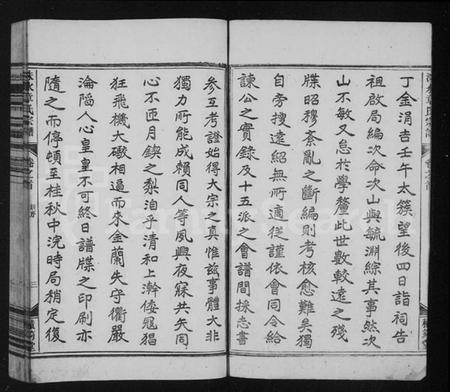 丁金涓吉壬午太簇望後四日詣祠告
祖啟局編次命次山與毓淵綜其事然次
山不敏又急於學釐此世數較遠之殘
牒昭穆紊亂之斷編則考核愈難矣獨
自旁搜遠紹無所適從謹依會同令給
諫公之實錄及十五派之會譜間採志書
參互考證始得大宗之真惟茲事體大非
獨力所能成賴同人等夙興夜寐共矢同
心不匝月鍥之梨洎乎清和上澣倭寇猖
狂飛機大礮相逼而來金蘭失守衢嚴
淪陷人心皇皇不可終日譜牒之印刷亦
隨之而停頓至桂秋中浣時局稍定復